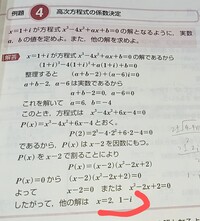 例題 4 高次方程式の係数決定
x=1+i が方程式 x³-4x²+ax+b=0 の解となるように，実数
a，b の値を定めよ。また，他の解を求めよ。
解答 x=1+i が方程式 x³-4x²+ax+b=0 の解であるから
(1+i)³-4(1+i)²+a(1+i)+b=0
整理すると (a+b-2)+(a-6)i=0
a+b-2，a-6 は実数であるから
a+b-2=0，a-6=0
これを解いて a=6，b=-4
このとき，方程式は x³-4x²+6x-4=0
P(x)=x³-4x²+6x-4 とおく。
P(2)=2³-4・2²+6・2-4=0
であるから，P(x) は x-2 を因数にもつ。
P(x) を x-2 で割ることにより
P(x)=(x-2)(x²-2x+2)
P(x)=0 から (x-2)(x²-2x+2)=0
よって x-2=0 または x²-2x+2=0
したがって，他の解は x=2，1-i